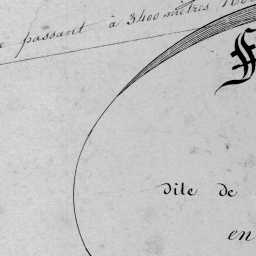 passant à 3400 mètres
dite de
en